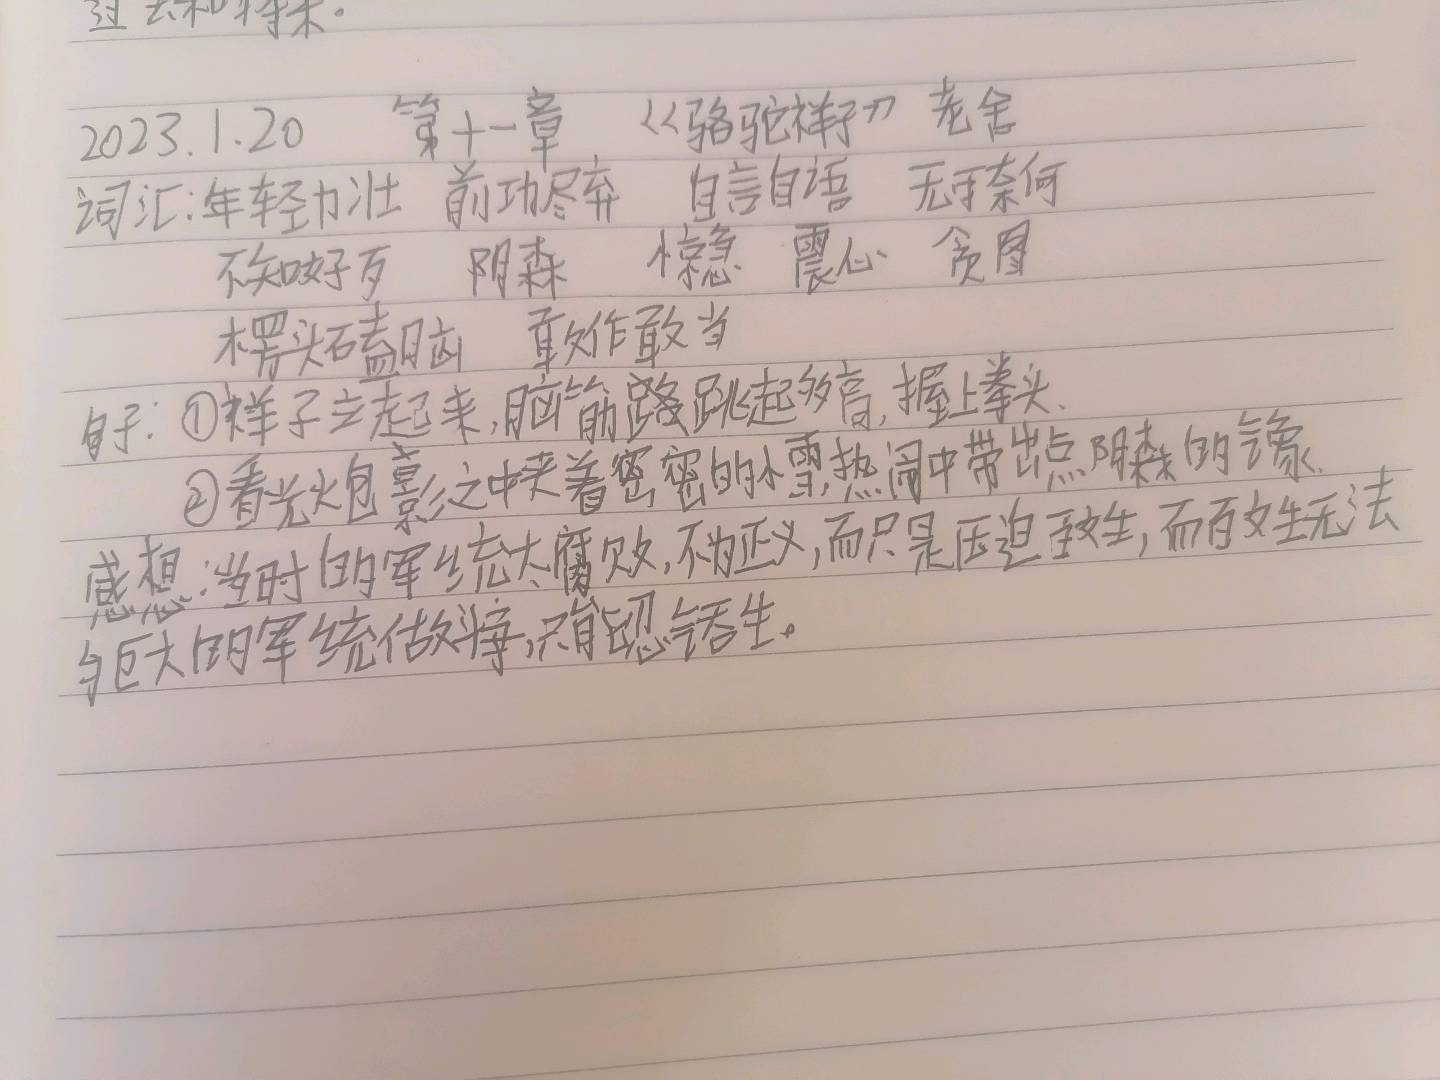 2023.1.20 第十一章 《骆驼祥子》 老舍
词汇:年轻力壮 前功尽弃 自言自语 无可奈何
不知好歹 阴森 惊急 震心 贪图
楞头磕脑 敢作敢当
句子:①祥子立起来,脑筋跳起多高,握上拳头.
②看光火包影之中夹着密密的小雪,热闹中带出点阴森的气象.
感想:当时的军统太腐败,不为正义,而只是压迫百姓,而百姓无法
与巨大的军统做斗争,只能忍气吞生。